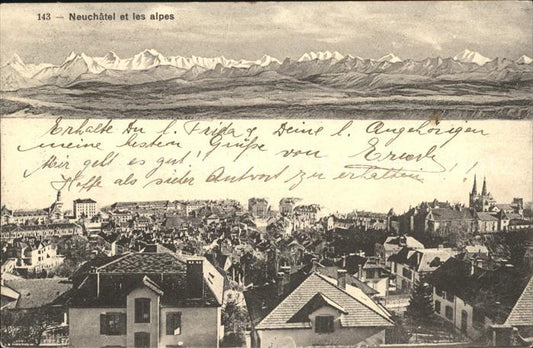 143 — Neuchâtel et les alpes
Erhalte Du l. Frida & Deine l. Angehörigen
meine besten Grüße von
Mir geht es gut!
Hoffe als sicher Antwort zu erhalten!!